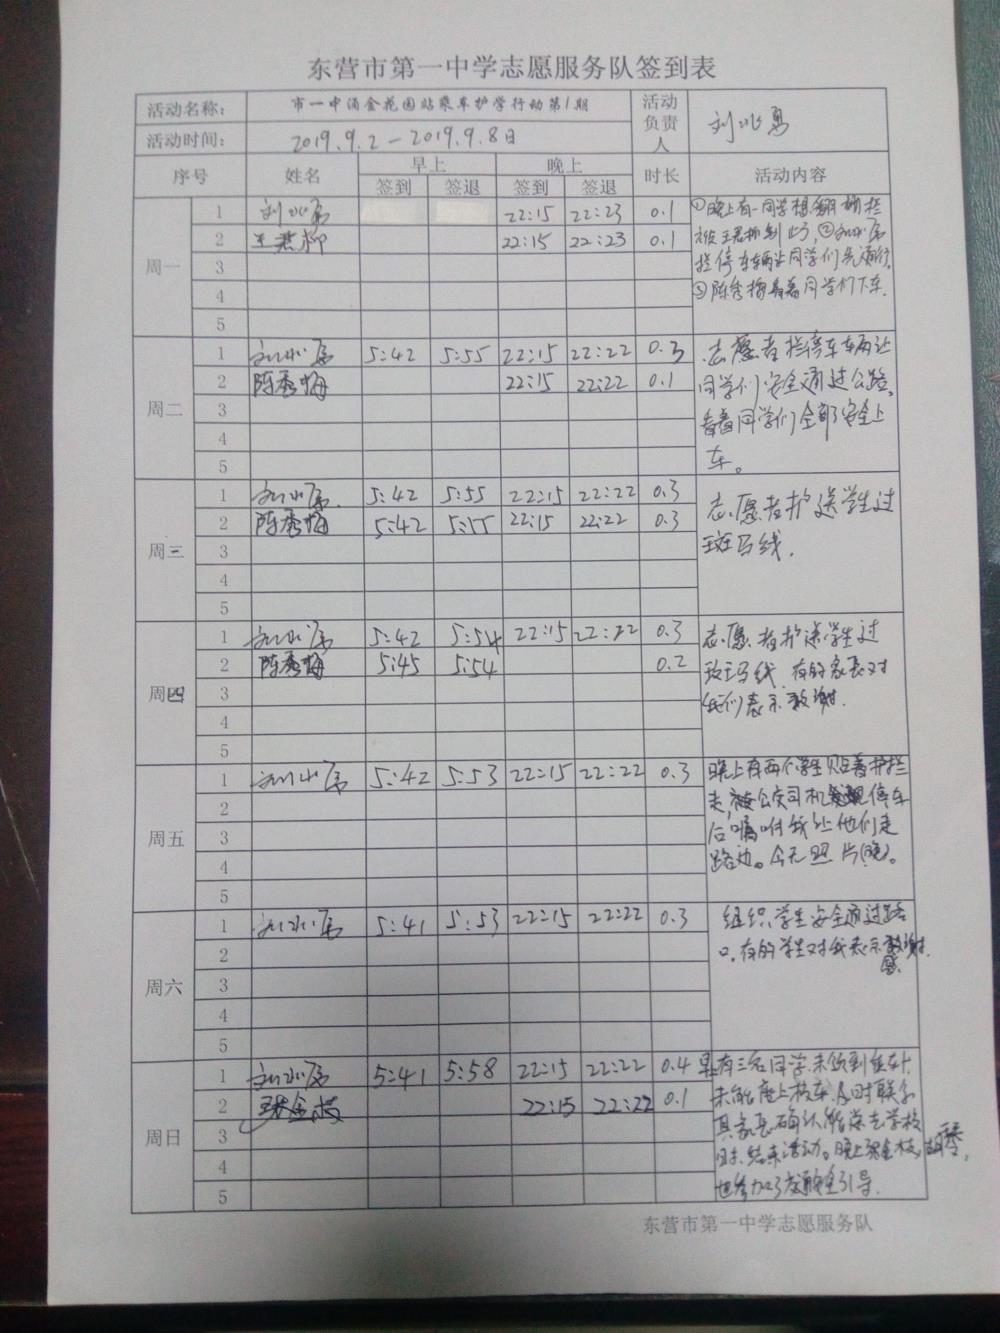 东营市第一中学志愿服务队签到表
活动名称： 市一中涌金花园站乘车护学行动第1期 活动负责人 刘兆勇
活动时间： 2019.9.2—2019.9.8日
序号 姓名 早上 晚上 时长 活动内容
签到 签退 签到 签退
周一
1 22:15 22:23 0.1 ①晚上有一同学想翻栅栏
2 22:15 22:23 0.1 被王君柳制止了,②
3 拦停车辆让同学们先通行.
4 ③陈秀梅看着同学们下车.
5
周二
1 5:42 5:55 22:15 22:22 0.3 志愿者拦停车车辆让
2 陈秀梅 22:15 22:22 0.1 同学们安全通过公路,
3 看着同学们全部安全上
4 车。
5
周三
1 5:42 5:55 22:15 22:22 0.3 志愿者护送学生过
2 陈秀梅 5:42 5:55 22:15 22:22 0.3 斑马线.
3
4
5
周四
1 5:42 5:54 22:15 22:22 0.3 志愿者护送学生过
2 陈秀梅 5:45 5:54 0.2 斑马线.有的家长对
3 我们表示致谢.
4
5
周五
1 5:42 5:53 22:15 22:22 0.3 晚上有两个学生贴着护栏
2 走,被公交司机发现停车
3 后,嘱咐我让他们走
4 路边。今无照片(晚)。
5
周六
1 5:41 5:53 22:15 22:22 0.3 组织学生安全通过路
2 口.有的学生对我表示感谢.
3
4
5
周日
1 5:41 5:58 22:15 22:22 0.4 早有三名同学未领到乘车卡
2 22:15 22:22 0.1 未能座上校车.及时联系
3 其家长确认能送去学校
4 时.结束活动。晚上
5 也参加了安全引导.
东营市第一中学志愿服务队